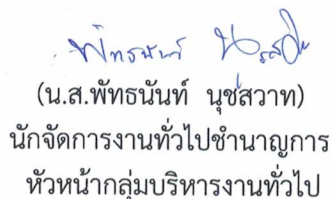 พัทธนันท์
(น.ส.พัทธนันท์ นุชสวาท)
นักจัดการงานทั่วไปชำนาญการ
หัวหน้ากลุ่มบริหารงานทั่วไป